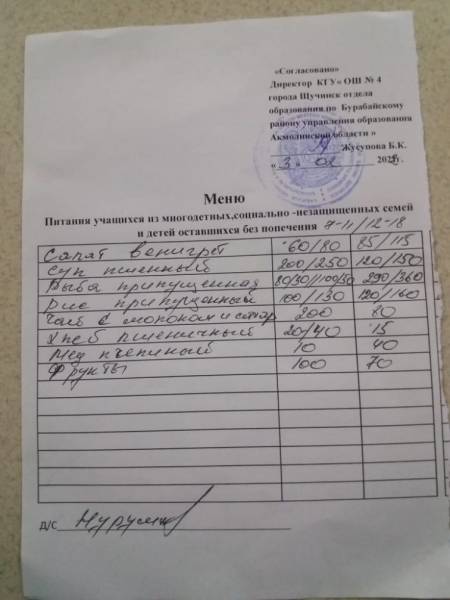 «Согласовано»
Директор КГУ« ОШ № 4
города Щучинск отдела
образования по Бурабайскому
району управления образования
Акмолинской области »
Жусупова Б.К.
« 3 » 02 202 г.
Меню
Питания учащихся из многодетных,социально -незащищенных семей
и детей оставшихся без попечения 7-11/12-18
Салат венигрет 60/80 85/115
Суп пшенный 200/250 120/150
Рыба припущенная 80/30//100/50 290/360
Рис припущенный 100/130 120/160
Чай с молоком и сахар 200 80
Хлеб пшеничный 20/40 15
Мед пчелиный 10 40
Фрукты 100 70
Д/С